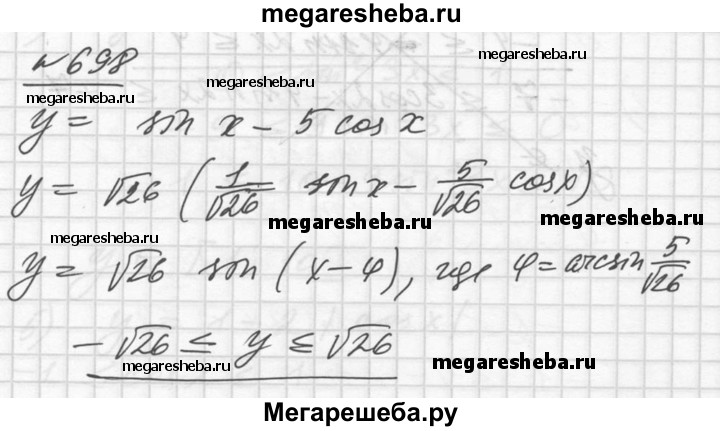 megaresheba.ru
№698
megaresheba.ru megaresheba.ru megaresheba.ru
y = sin x - 5 cos x
y = √26 (1/√26 sin x - 5/√26 cos x)
megaresheba.ru megaresheba.ru megaresheba.ru
y = √26 sin (x - φ), где φ = arcsin 5/√26
-√26 ≤ y ≤ √26
megaresheba.ru megaresheba.ru
Мегарешеба.ру